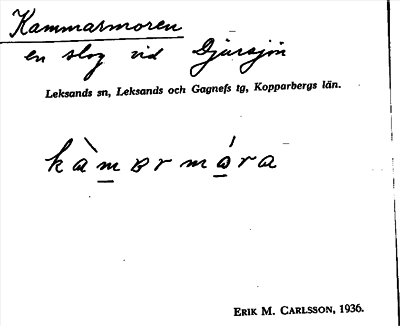 Kammarmoren
en slog vid Djursjön
Leksands sn, Leksands och Gagnefs tg, Kopparbergs län.
kàmərmóra
ERIK M. CARLSSON, 1936.